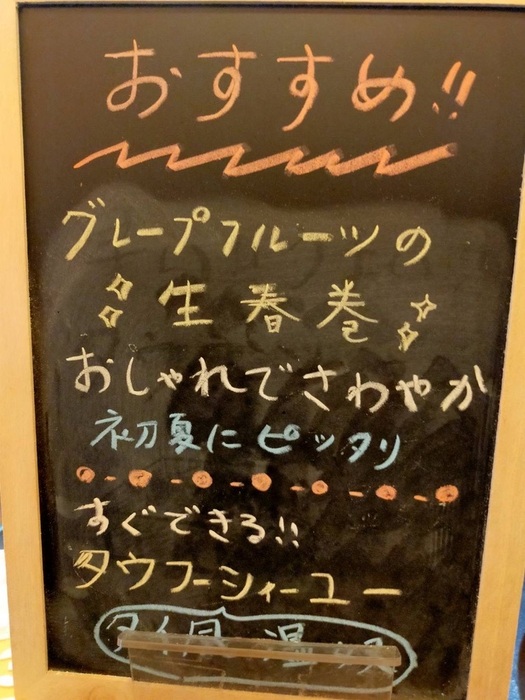 おすすめ!!
グレープフルーツの
生春巻
おしゃれでさわやか
初夏にピッタリ
すぐできる!!
タウフーシィーユー
タイ風 温